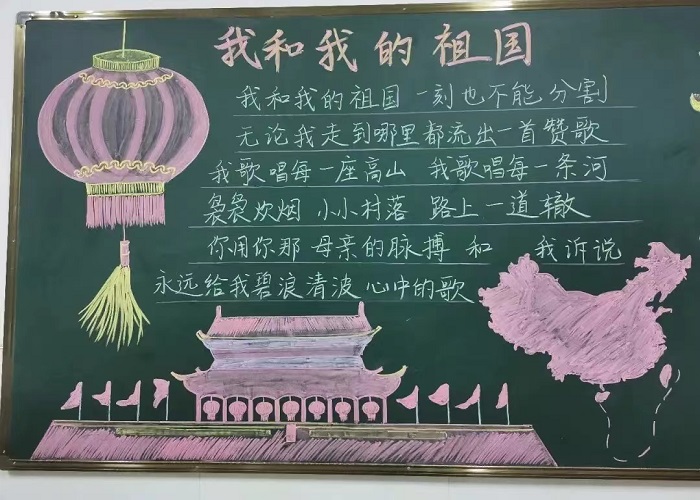 我和我的祖国
我和我的祖国 一刻也不能分割
无论我走到哪里都流出一首赞歌
我歌唱每一座高山 我歌唱每一条河
袅袅炊烟 小小村落 路上一道辙
你用你那母亲的脉搏 和 我诉说
永远给我碧浪清波 心中的歌